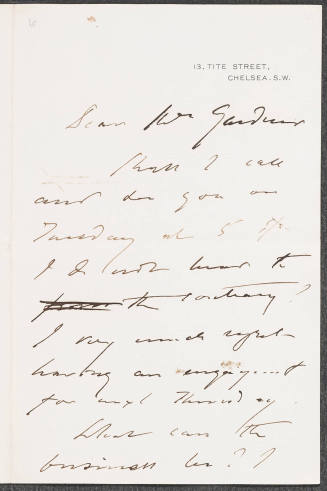 13, TITE STREET,
CHELSEA. S.W.
Dear Mrs Gardner
Shall I call
and see you on
Tuesday at 5 if
I do not hear to
the contrary?
I very much regret
having an engagement
for next Thursday.
What can the
business be? I